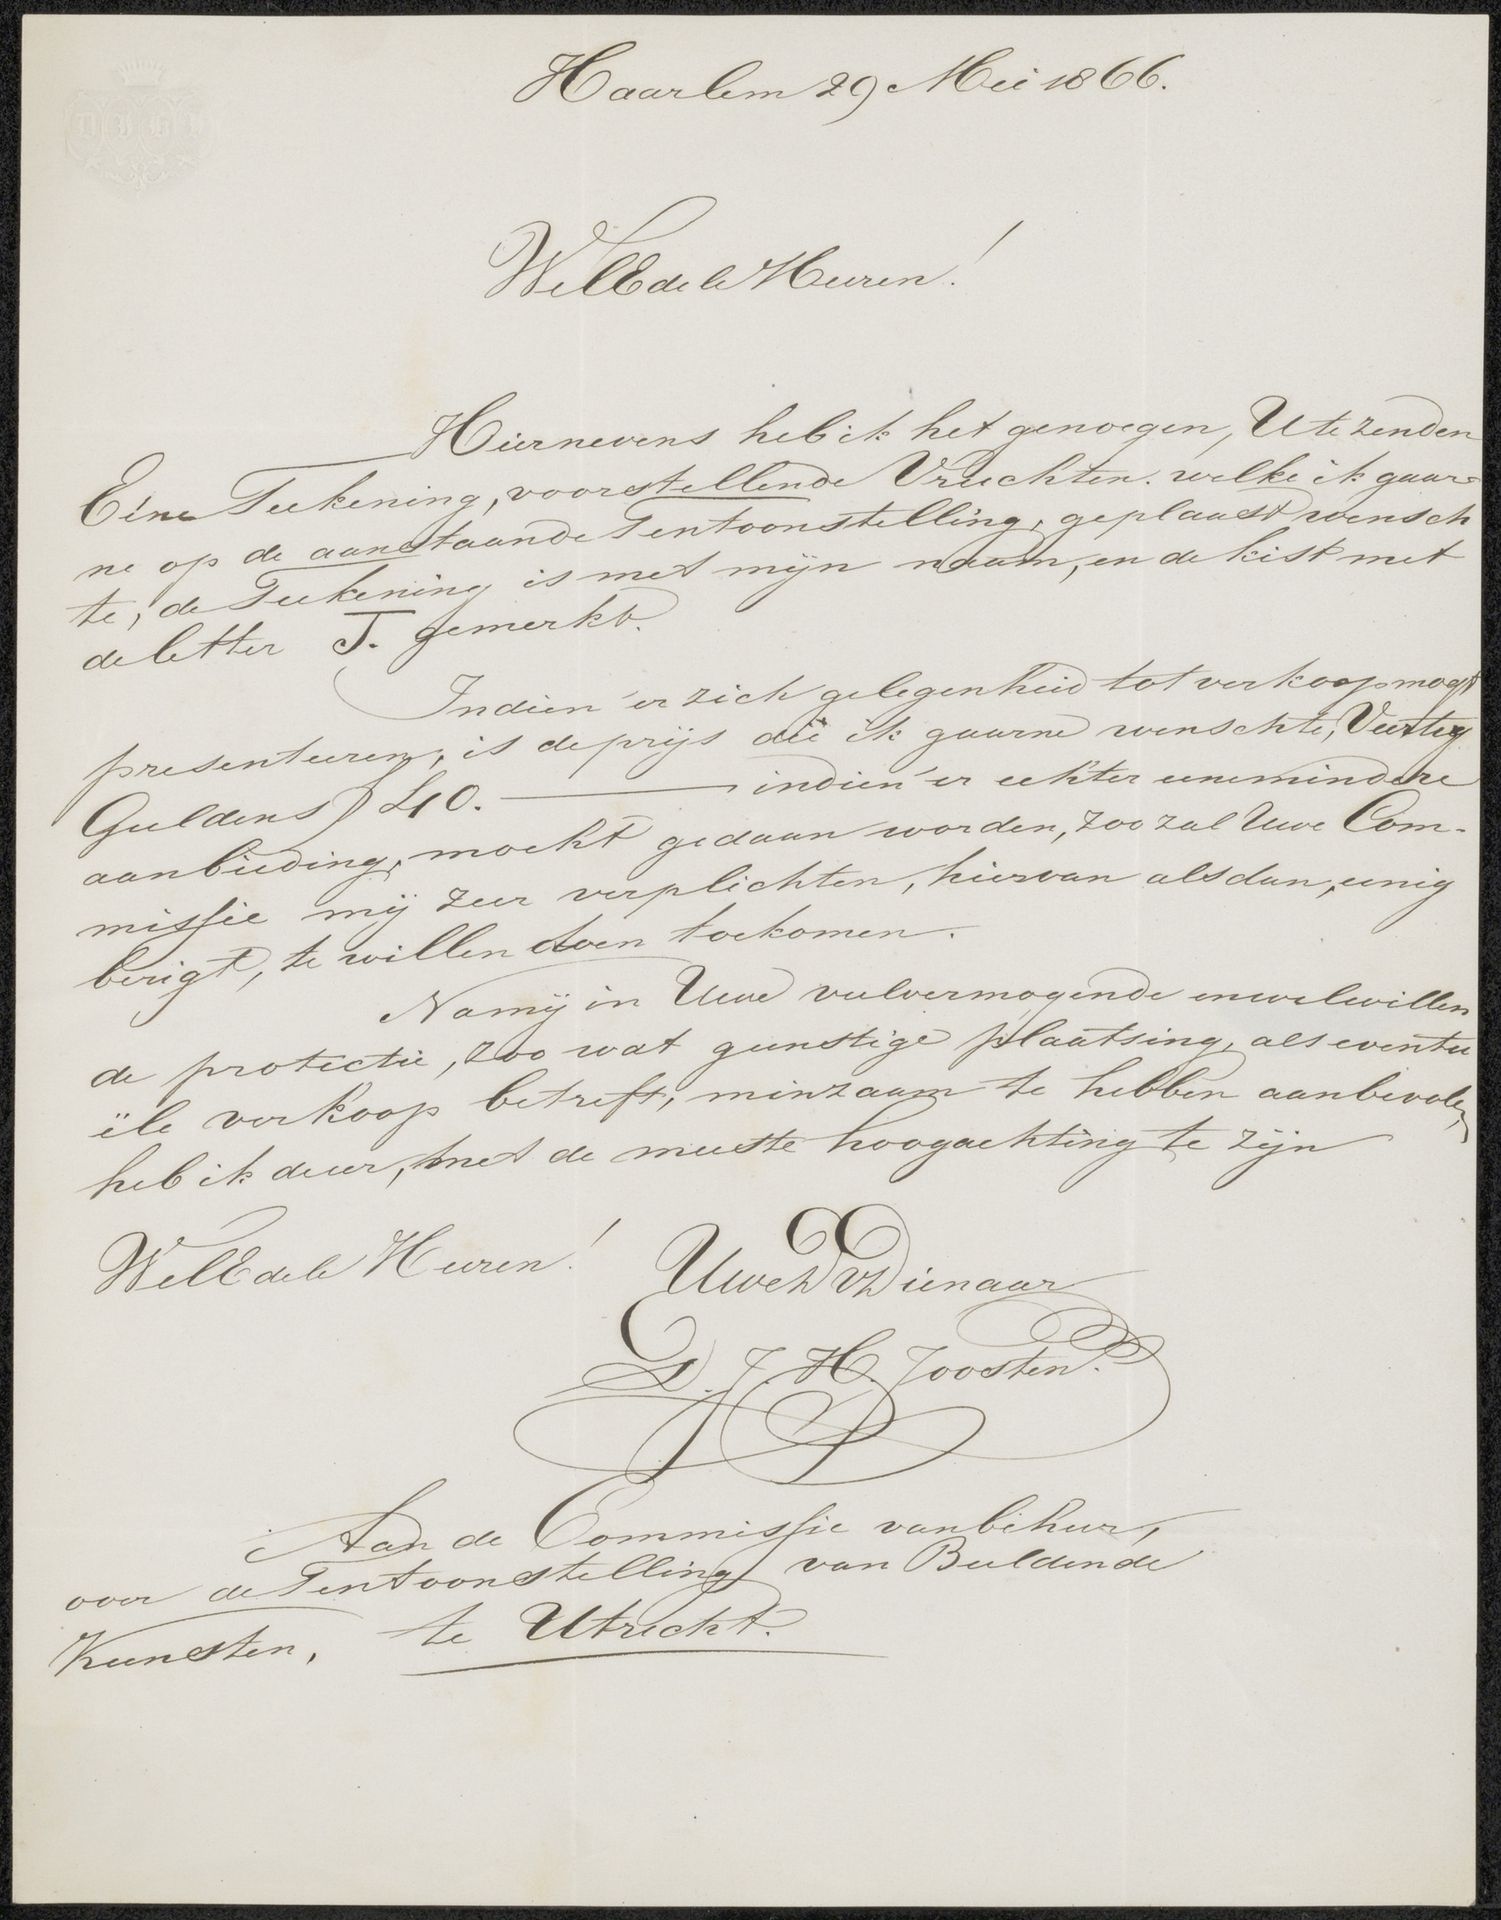 D J H J
Haarlem 29 Mei 1866.
WelEdele Heeren!
Hiernevens heb ik het genoegen, U te zenden
Eéne Teekening, voorstellende Vruchten. welke ik gaar=
ne op de aanstaande Tentoonstelling, geplaast wensch
te, de Teekening is met mijn naam, en de kist met
de letter J. gemerkt.
Indien er zich gelegenheid tot verkoop mogt
presenteeren, is de prijs die ik gaarne wenschte, Veertig
Guldens ƒ 40. — indien er echter eene mindere
aanbieding, mocht gedaan worden, zoo zal Uwe Com-
missie mij zeer verplichten, hiervan alsdan, eenig
berigt, te willen doen toekomen.
Na mij in Uwe veelvermogende en welwillen
de protectie, zoo wat gunstige plaatsing, als eventu
ële verkoop betreft, minzaam te hebben aanbevolen,
heb ik de eer, met de meeste hoogachting te zijn
WelEdele Heeren!
Uwe Dienaar
D. J. H. Joosten.
Aan de Commissie van beheer,
over de Tentoonstelling van Beeldende
Kunsten, te Utrecht.